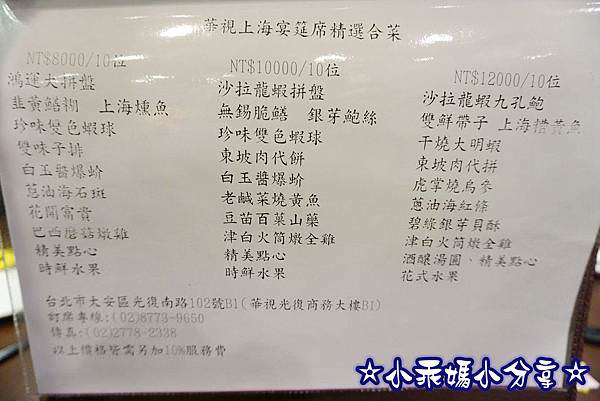 華視上海宴筵席精選合菜
NT$8000/10位
鴻運大拼盤
韭黃鱔糊　上海燻魚
珍味雙色蝦球
雙味子排
白玉醬爆蚧
蔥油海石斑
花開富貴
巴西蘑菇燉雞
精美點心
時鮮水果
NT$10000/10位
沙拉龍蝦拼盤
無錫脆鱔　銀芽鮑絲
珍味雙色蝦球
東坡肉代餅
白玉醬爆蚧
老鹹菜燒黃魚
豆苗百葉山藥
津白火筒燉全雞
精美點心
時鮮水果
NT$12000/10位
沙拉龍蝦九孔鮑
雙鮮帶子　上海糟黃魚
干燒大明蝦
東坡肉代拼
虎掌燒烏參
蔥油海紅條
碧綠銀芽貝酥
津白火筒燉全雞
酒釀湯圓、精美點心
花式水果
台北市大安區光復南路102號B1(華視光復商務大樓B1)
訂席專線:(02)8773-9650
傳真:(02)2778-2338
以上價格皆需另加10%服務費
☆小乖媽小分享☆